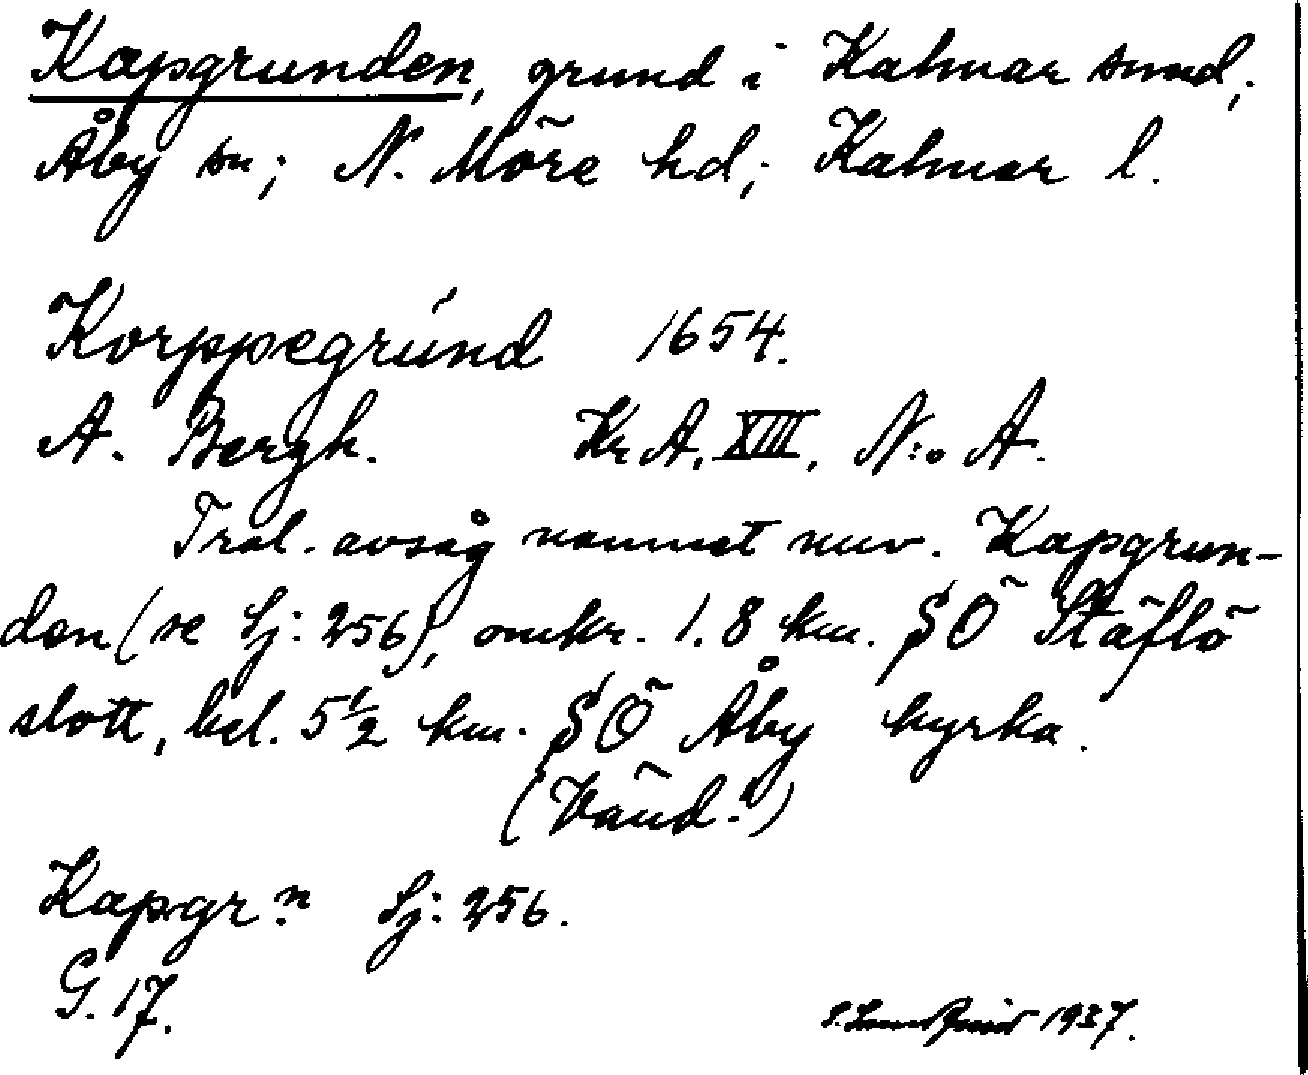 Kapgrunden, grund i Kalmar sund;
Åby sn; N. Möre hd; Kalmar l.
Korppegrúnd 1654.
A. Bergh. KrA, XIII, N:o A.
Trol. avsåg namnet nuv. Kapgrun-
den (se Sj: 256), omkr. 1.8 km. SÖ Stäflö
slott, bel. 5½ km. SÖ Åby kyrka.
(Vänd!)
Kapgr n. Sj: 256.
G. 17.
1937.